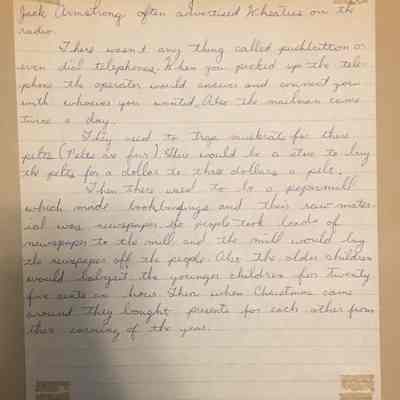 Jack Armstrong often advertised Wheaties on the
radio.
There wasn't any thing called pushbutton or
even dial telephones. When you picked up the tele-
phone the operator would answer and connect you
with whoever you wanted. Also the mailman came
twice a day.
They used to trap muskrats for there
pelts (Pelts are fur). There would be a store to buy
the pelts for a dollar to three dollars a pelt.
Then there used to be a papermill
which made bookbindings and their raw mater-
ial was newspaper. So people took loads of
newspaper to the mill and the mill would buy
the newspaper off the people. Also the older children
would babysit the younger children for twenty
five cents an hour. Then when Christmas came
around they bought presents for each other from
their earning of the year.